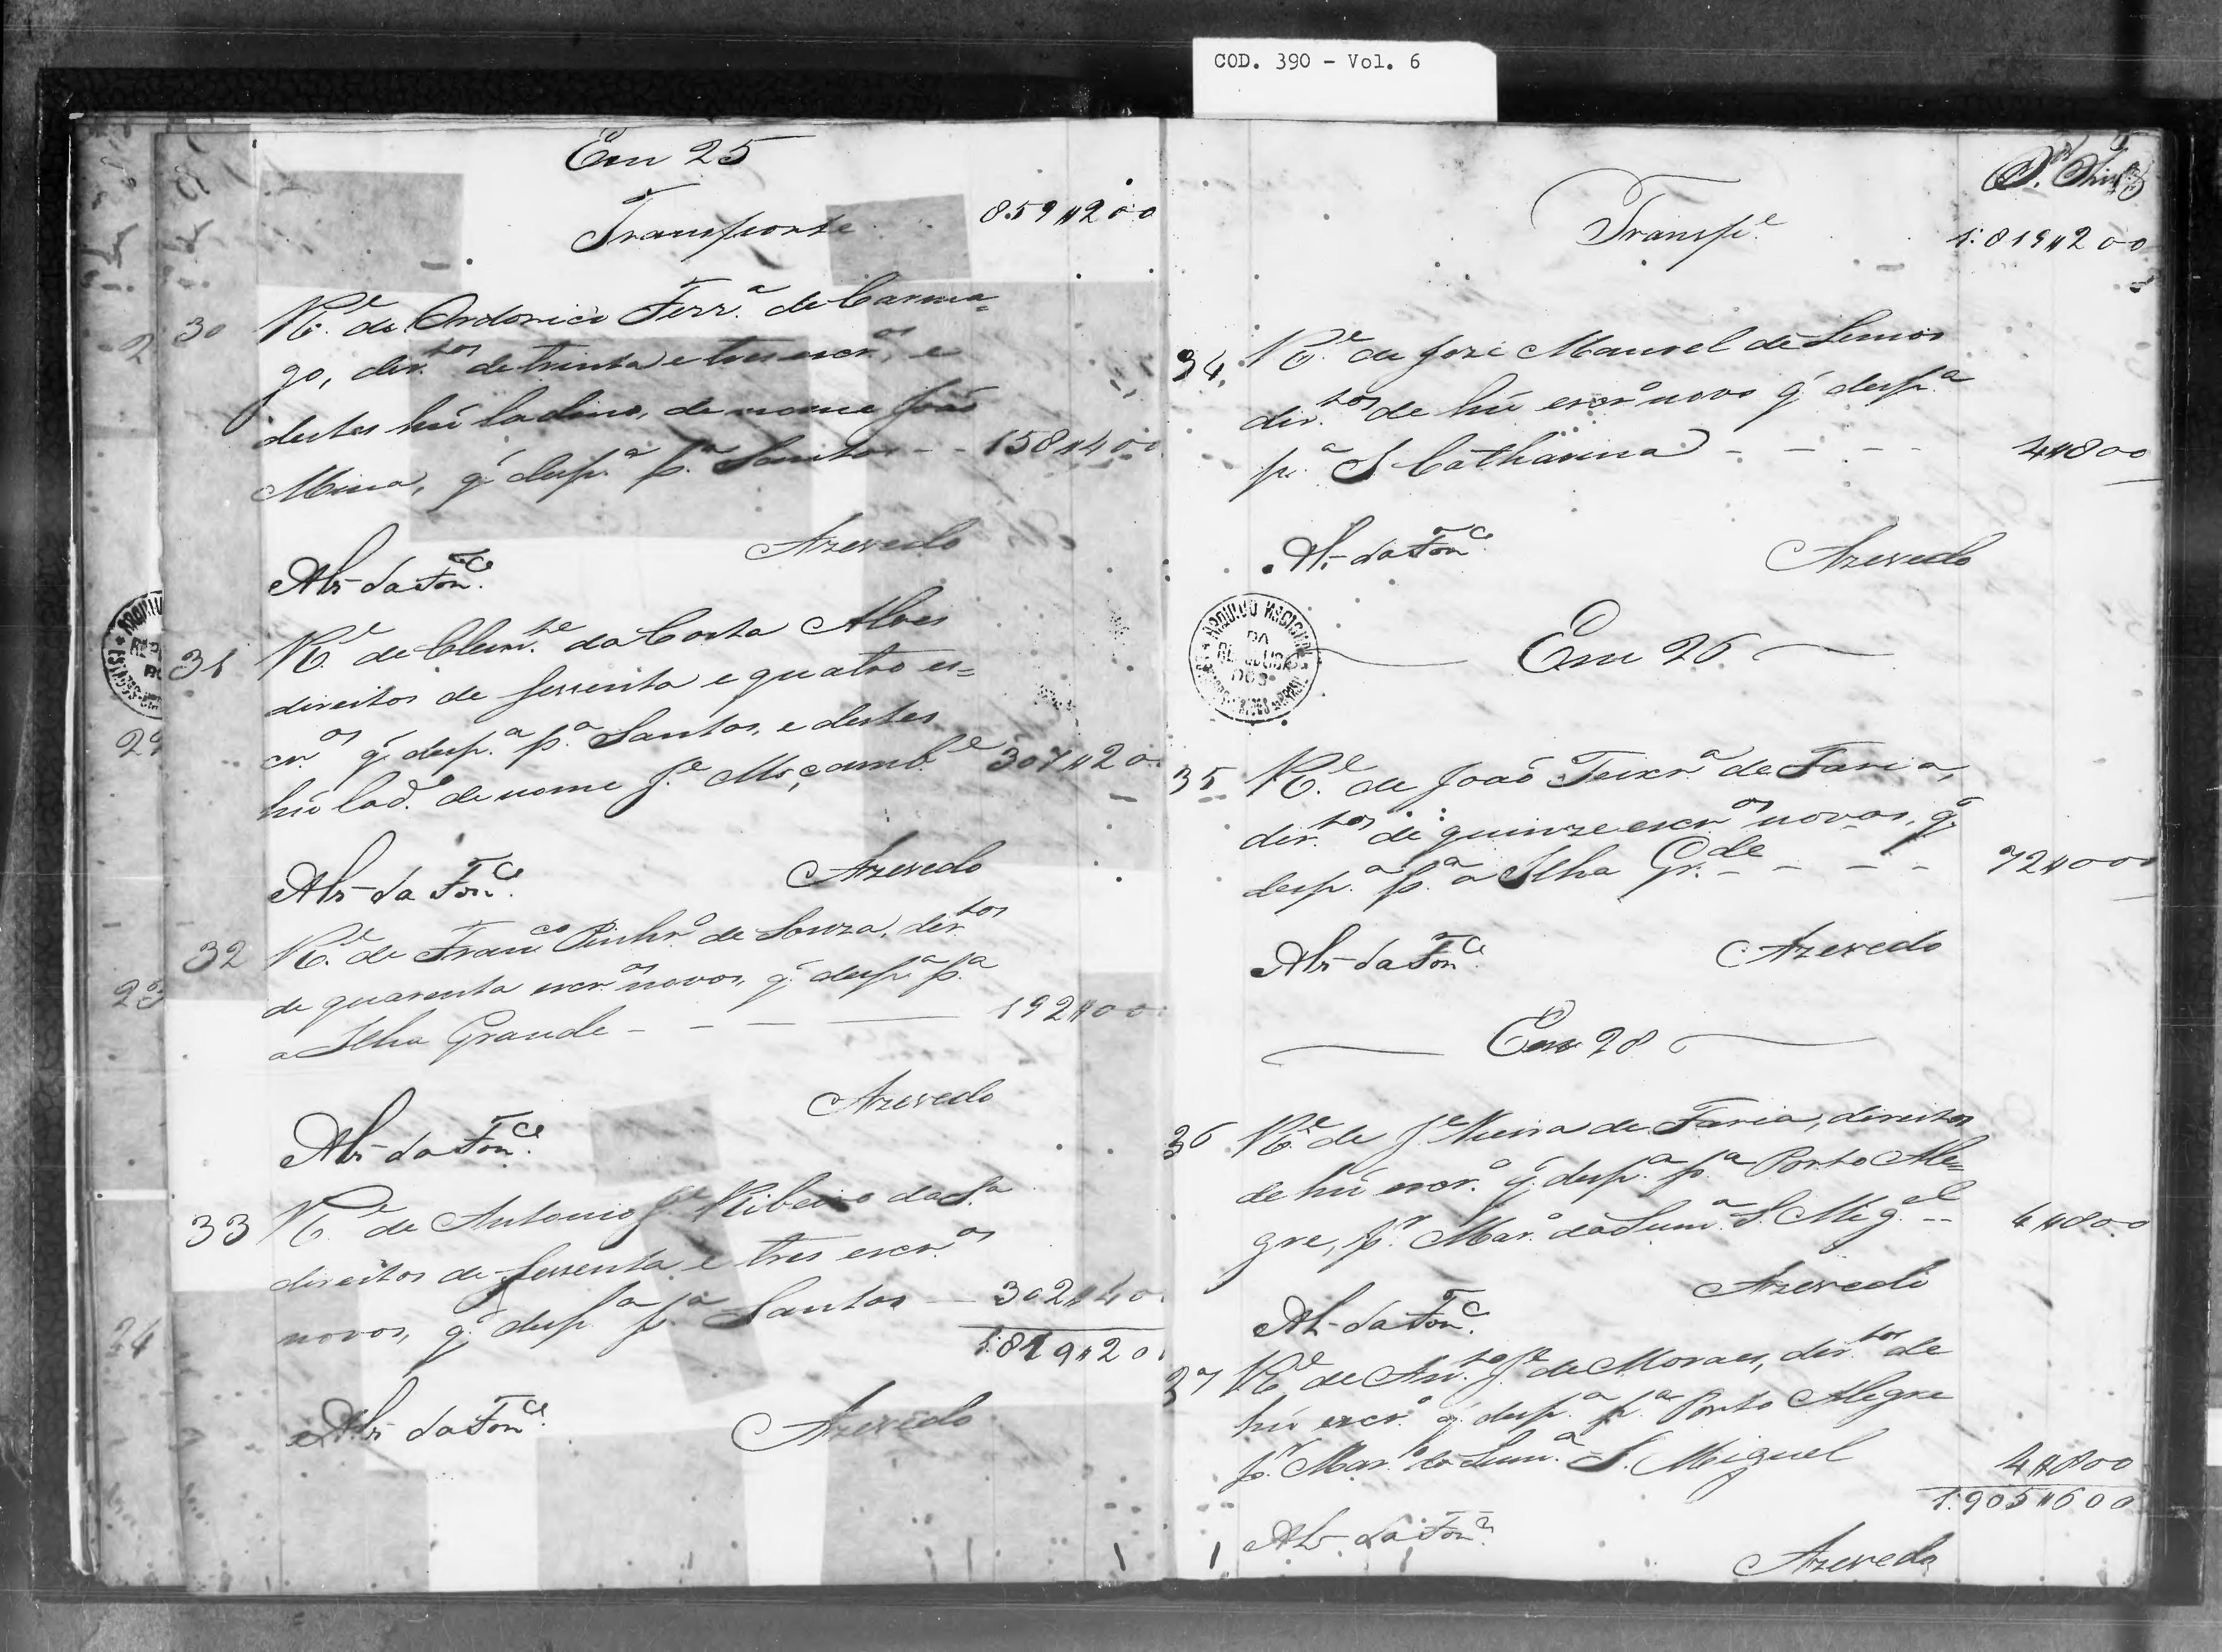 COD. 390 - Vol. 6
Em 25
Transporte 859#200
30 R.e de Ordorico Ferr.a de Carma=
go, dir.tos de trinta e tres escr.os, e
destes hú ladino, de nome João
Mina, q' desp.a p.a Santos - - 158#400
Alz da Fon.ca Azevedo
31 R.e de Clem.te da Costa Alves
direitos de sessenta e quatro es=
cr.os q' desp.a p.a Santos, e destes
hú lad.o de nome J.e Moçamb.e 307#20
Alz da Fon.ca Azevedo
32 R.e de Fran.co Pinhr.o de Souza, dir.tos
de quarenta escr.os novos, q' desp.a p.a
a Ilha Grande - - - 192#00
Azevedo
Alz da Fon.ca
33 R.e de Antonio J.e Ribeiro da S.a
direitos de sessenta e tres escr.os
novos, q' desp.a p.a Santos - 302#40
1:819#20
Alz da Fon.ca Azevedo
Transp.e 1:819#200
34 R.e de José Manoel de Lemos
dir.tos de hú escr.o novo q' desp.a
p.a S Catharina - - - - 4#800
Alz da Fon.ca Azevedo
ARQUIVO NACIONAL
Em 26
35 R.e de João Teixr.a de Faria,
dir.tos de quinze escr.os novos, q'
desp.a p.a a Ilha Gr.de - - - - 72#000
Alz da Fon.ca Azevedo
Em 28
36 R.e de J.e Vieira de Faria, direitos
de hú escr.o q' desp.a p.a Porto Ale=
gre, p.r Mar. da Sum.a S. Mig.el -- 4#800
Azevedo
Alz da Fon.ca
37 R.e de Ant.o J.e de Moraes, dir.tos de
hú escr.o q' desp.a p.a Porto Alegre
p.r Mar. da Sum.a S. Miguel 4#800
1:905#600
Alz da Fon.ca
Azevedo